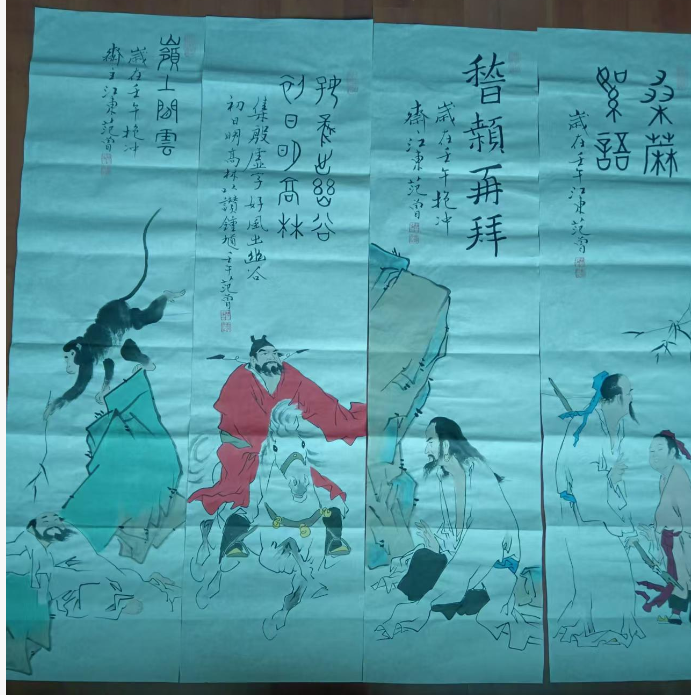 桑蔴
絮語
歲在壬午江東范曾
稽顙再拜
歲在壬午抱冲
齋主江東范曾
好風出幽谷
初日明高林
集殷虛字好風出幽谷
初日明高林以讚鍾馗壬午范曾
嶺上閒雲
歲在壬午抱冲
齋主江東范曾